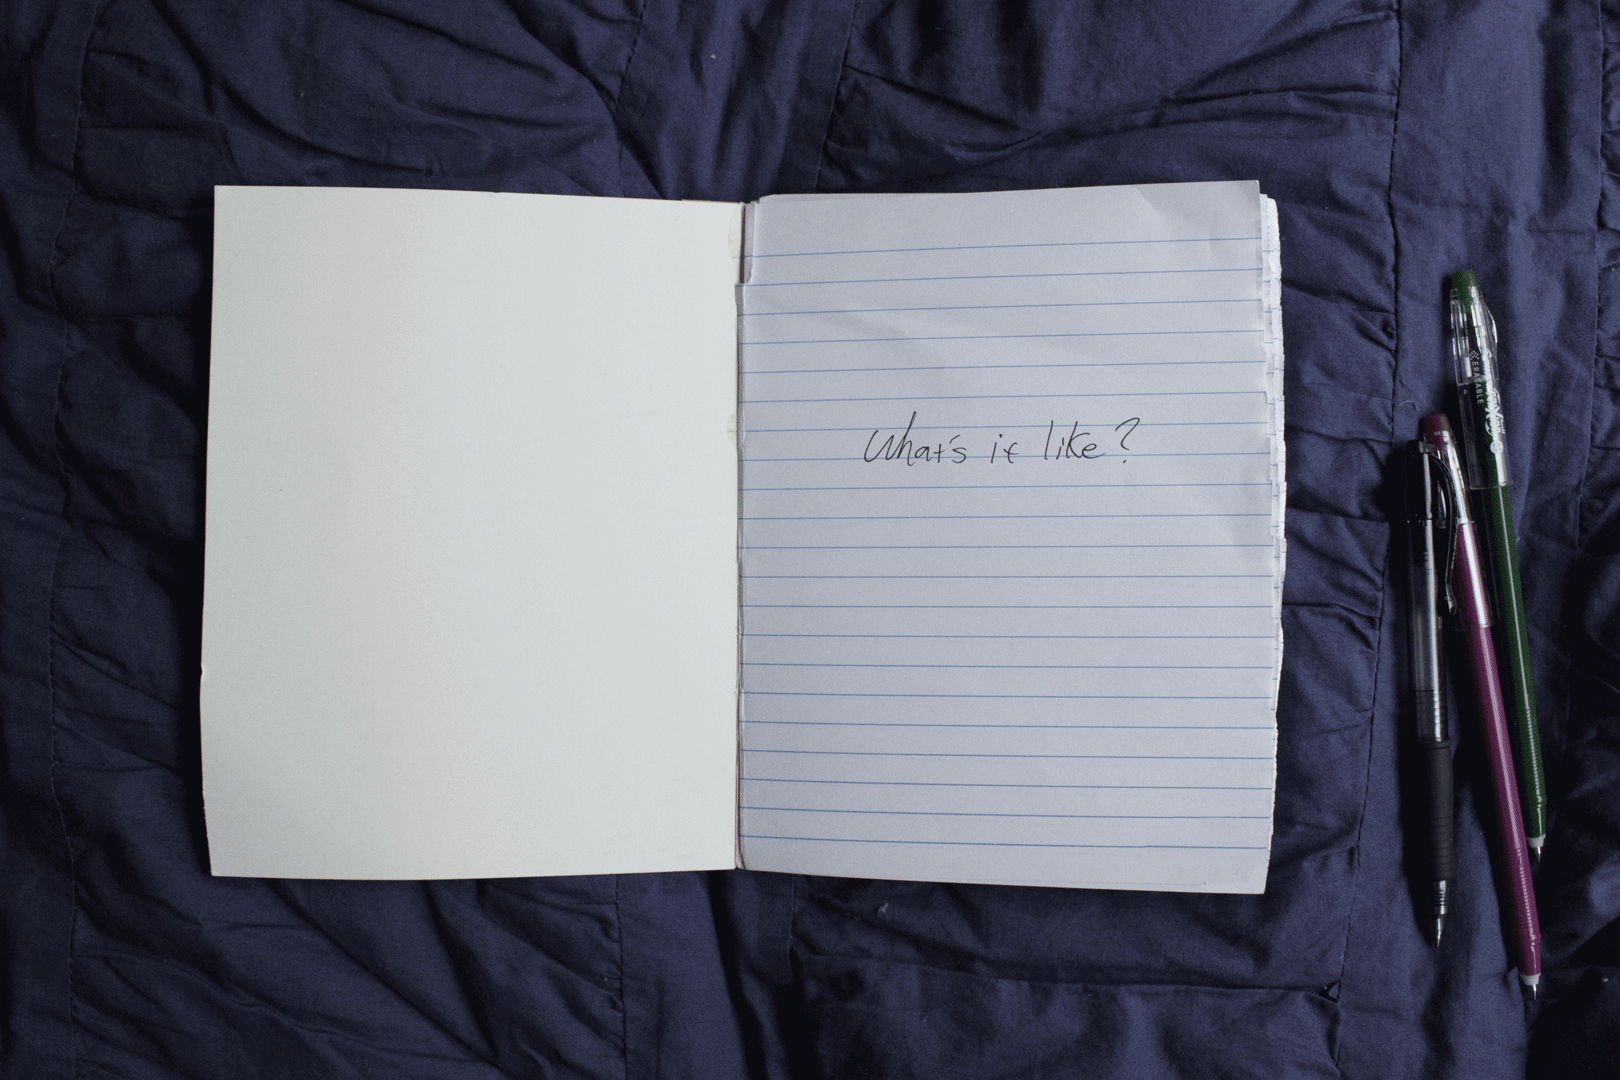 What's it like?
ERASABLE